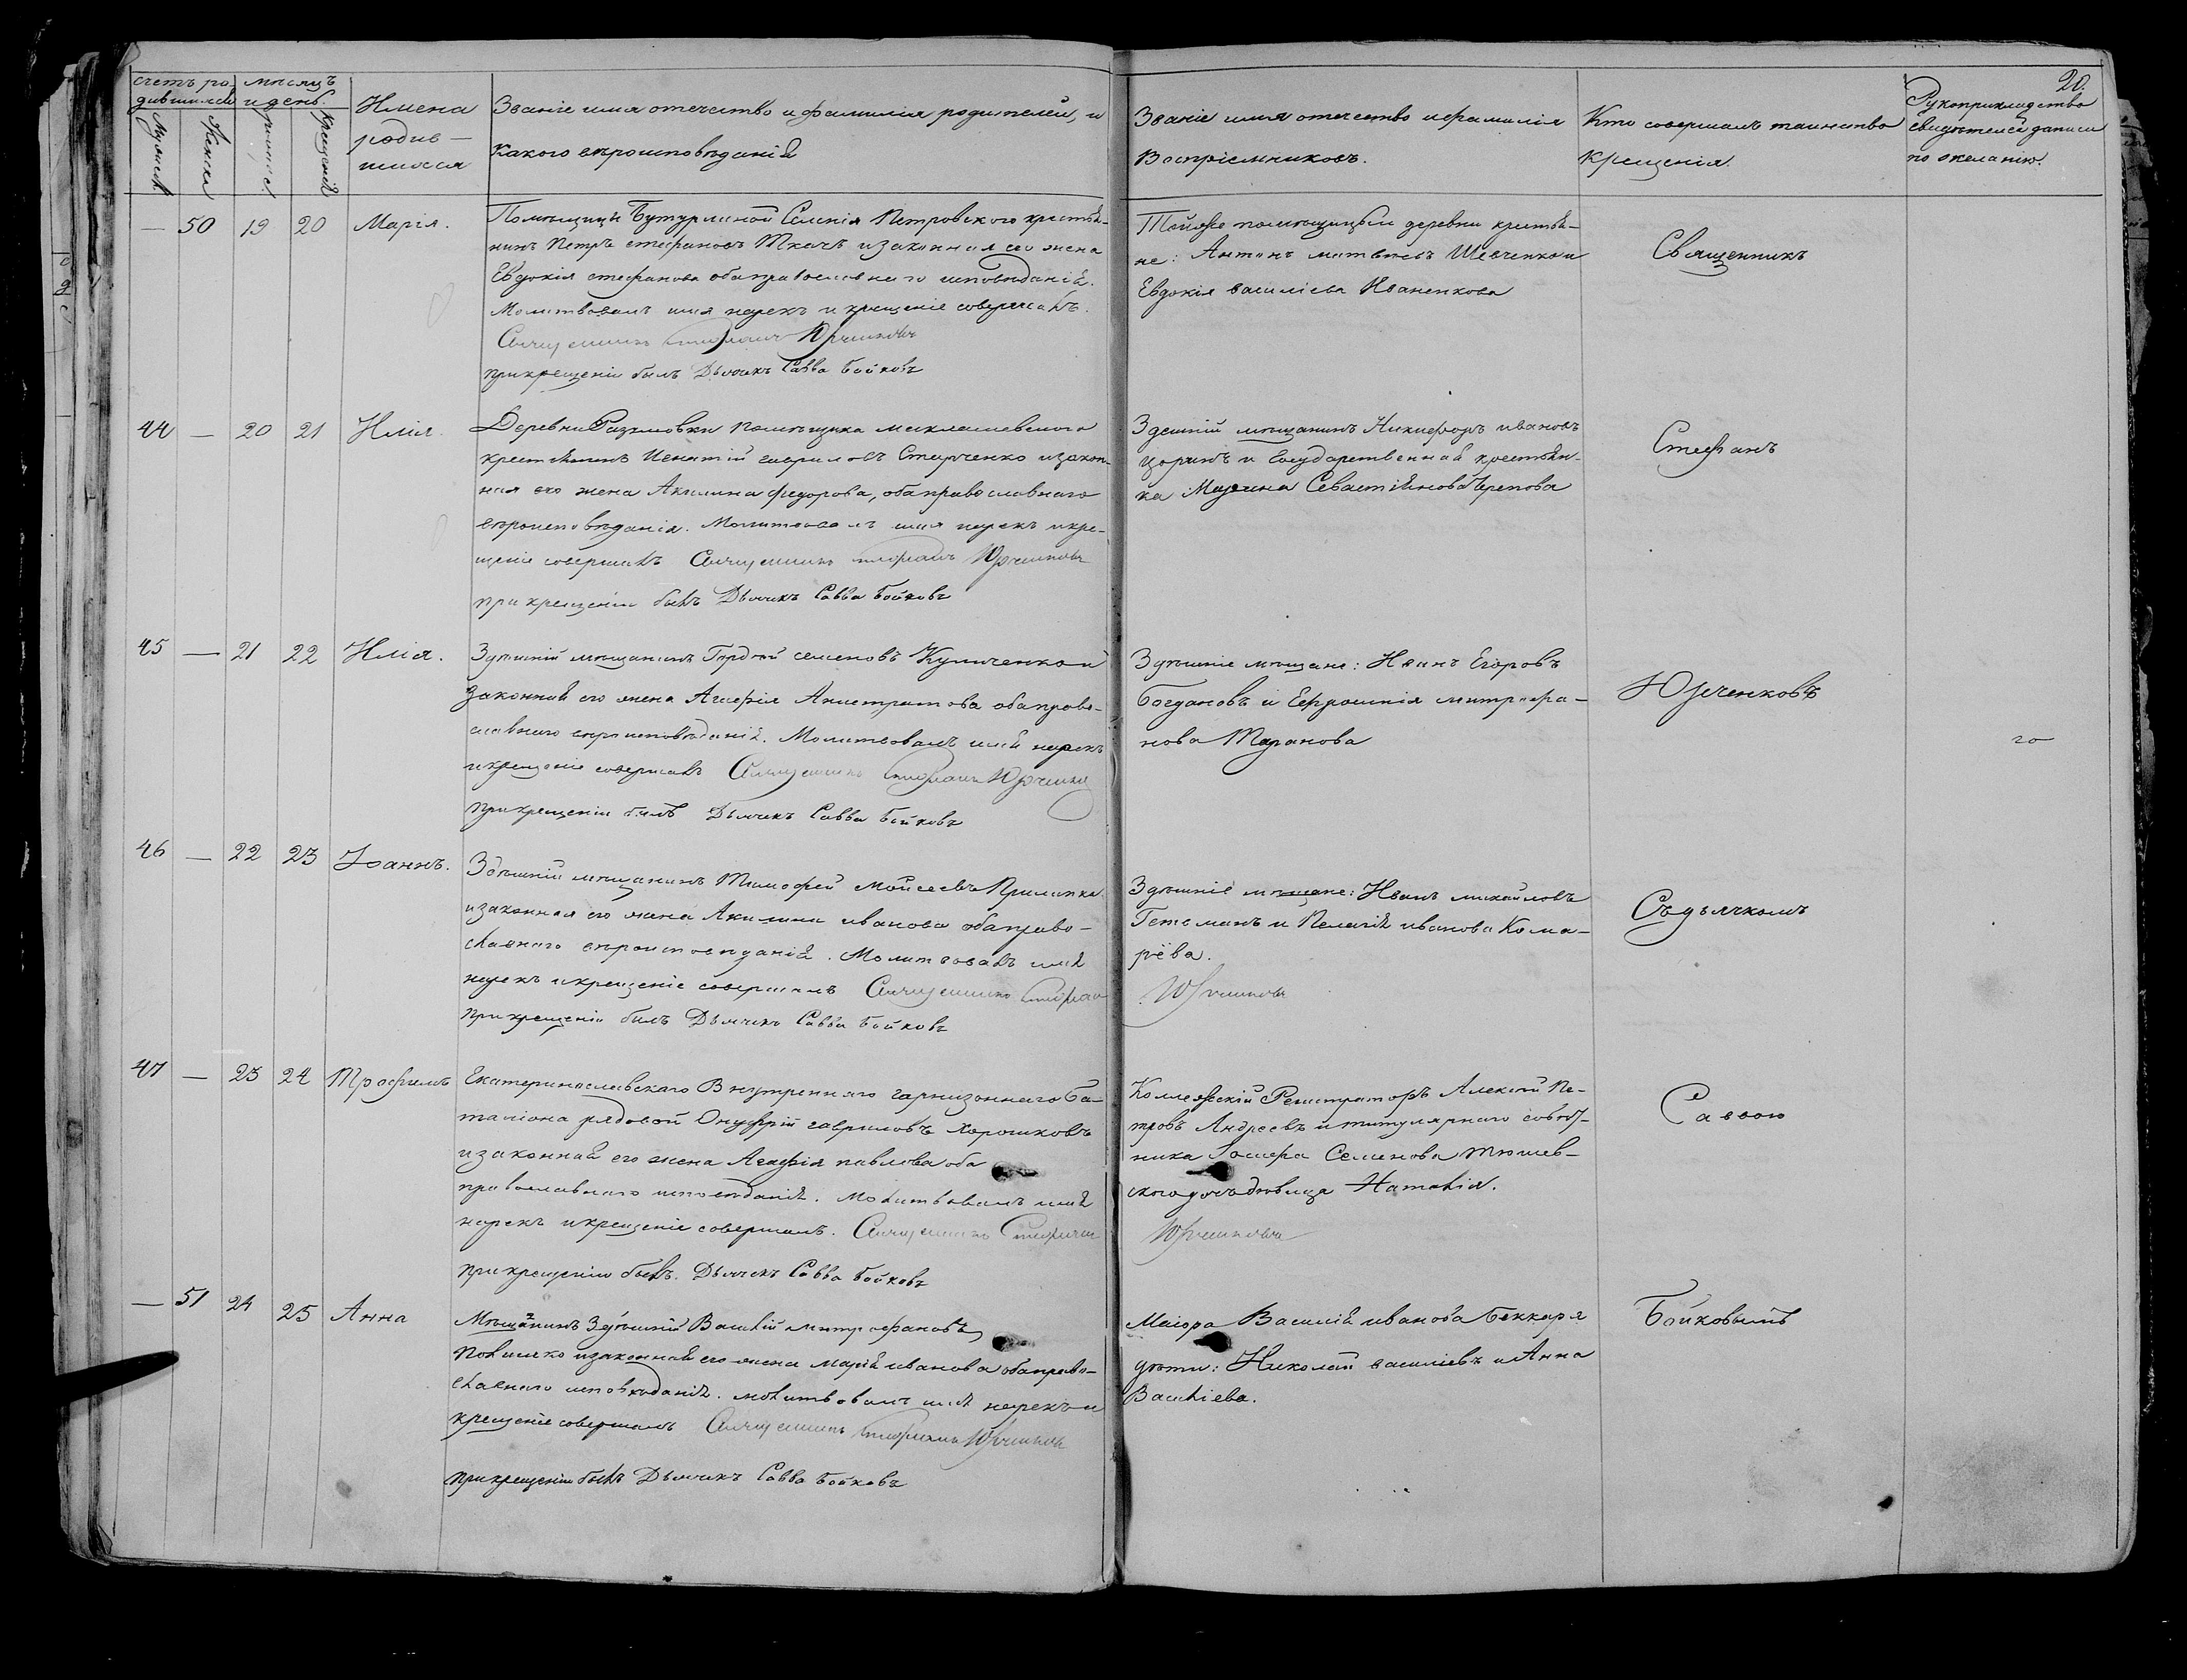 20.
счетъ ро- мѣсяцъ
дившихся и день.
Мужеска Женска рожденія крещенія
Имена
родив-
шихся
Званіе имя отечество и фамилія родителей, и
Какого вѣроисповѣданія
Званіе имя отечество и фамилія
Воспріемниковъ.
Кто совершалъ таинство
крещенія.
Рукоприкладство
свидѣтелей записи
по желанію.
— 50 19 20 Марія.
Помѣщицы Бутурлиной Селенія Петровского крестья-
нинъ Петръ стефановъ Ткачъ и законная его жена
Евдокія стефанова оба православнаго исповѣданія.
Молитвовалъ имя нарекъ и крещеніе совершалъ.
Священникъ Стефанъ Юрченковъ
при крещеніи былъ Дьячекъ Савва Бойковъ
Тойже помѣщицы деревни крестья-
не: Антонъ матвѣевъ Шевченко и
Евдокія василіева Иваненкова
Священникъ
44 — 20 21 Илія.
Деревни Разумовки помѣщика миклашевского
крестьянинъ Игнатій гавриловъ Старченко и закон-
ная его жена Акилина федорова, оба православнаго
вѣроисповѣданія. Молитвовалъ имя нарекъ и кре-
щеніе совершалъ Священникъ Стефанъ Юрченковъ
при крещеніи былъ Дьячекъ Савва Бойковъ
Здешній мѣщанинъ Никифоръ ивановъ
Царинъ и Государственная крестьян-
ка Марина Севастіянова Черепова
Стефанъ
45 — 21 22 Илія.
Здѣшній мѣщанинъ Гордѣй семеновъ Куниченко и
законная его жена Агафія Анистратова оба право-
славнаго вѣроисповѣданія. Молитвовалъ имя нарекъ
и крещеніе совершалъ Священникъ Стефанъ Юрченков
при крещеніи былъ Дьячекъ Савва Бойковъ
Здѣшніе мѣщане: Иванъ Егоровъ
Богдановъ и Ефросинія митрофа-
нова Таранова
Юрченковъ
46 — 22 23 Іоаннъ.
Здѣшній мѣщанинъ Тимофей Мойсеевъ Прилипка
и законная его жена Акилина иванова оба право-
славнаго вѣроисповѣданія. Молитвовалъ имя
нарекъ и крещеніе совершалъ Священникъ Стефан
при крещеніи былъ Дьячекъ Савва Бойковъ
Здѣшніе мѣщане: Иванъ михайловъ
Гетеманъ и Пелагія иванова Кома-
рёва.
Юрченковъ
Съ дьячкомъ
47 — 23 24 Трофимъ
Екатеринославского Внутренняго гарнизоннаго Ба-
таліона рядовой Онуфрій гавриловъ Хорошковъ
и законная его жена Агафія павлова оба
православнаго исповѣданія. Молитвовалъ имя
нарекъ и крещеніе совершалъ. Священникъ Стефанъ
при крещеніи былъ. Дьячекъ Савва Бойковъ
Коллежскій Регистраторъ Алексѣй Пе-
тровъ Андреевъ и титулярнаго совѣт-
ника Іосифа Семенова Тюшев-
ского дочь дѣвица Наталія.
Юрченковъ
Саввою
— 51 24 25 Анна
Мѣщанинъ Здѣшній Василій митрофановъ
Повиляко и законная его жена Марія иванова оба право-
славнаго исповѣданія. молитвовалъ имя нарекъ и
крещеніе совершалъ Священникъ Стефанъ Юрченков
при крещеніи былъ Дьячекъ Савва Бойковъ
Маіора Василія иванова Беккаря
дѣти: Николай василіевъ и Анна
Василіева.
Бойковымъ